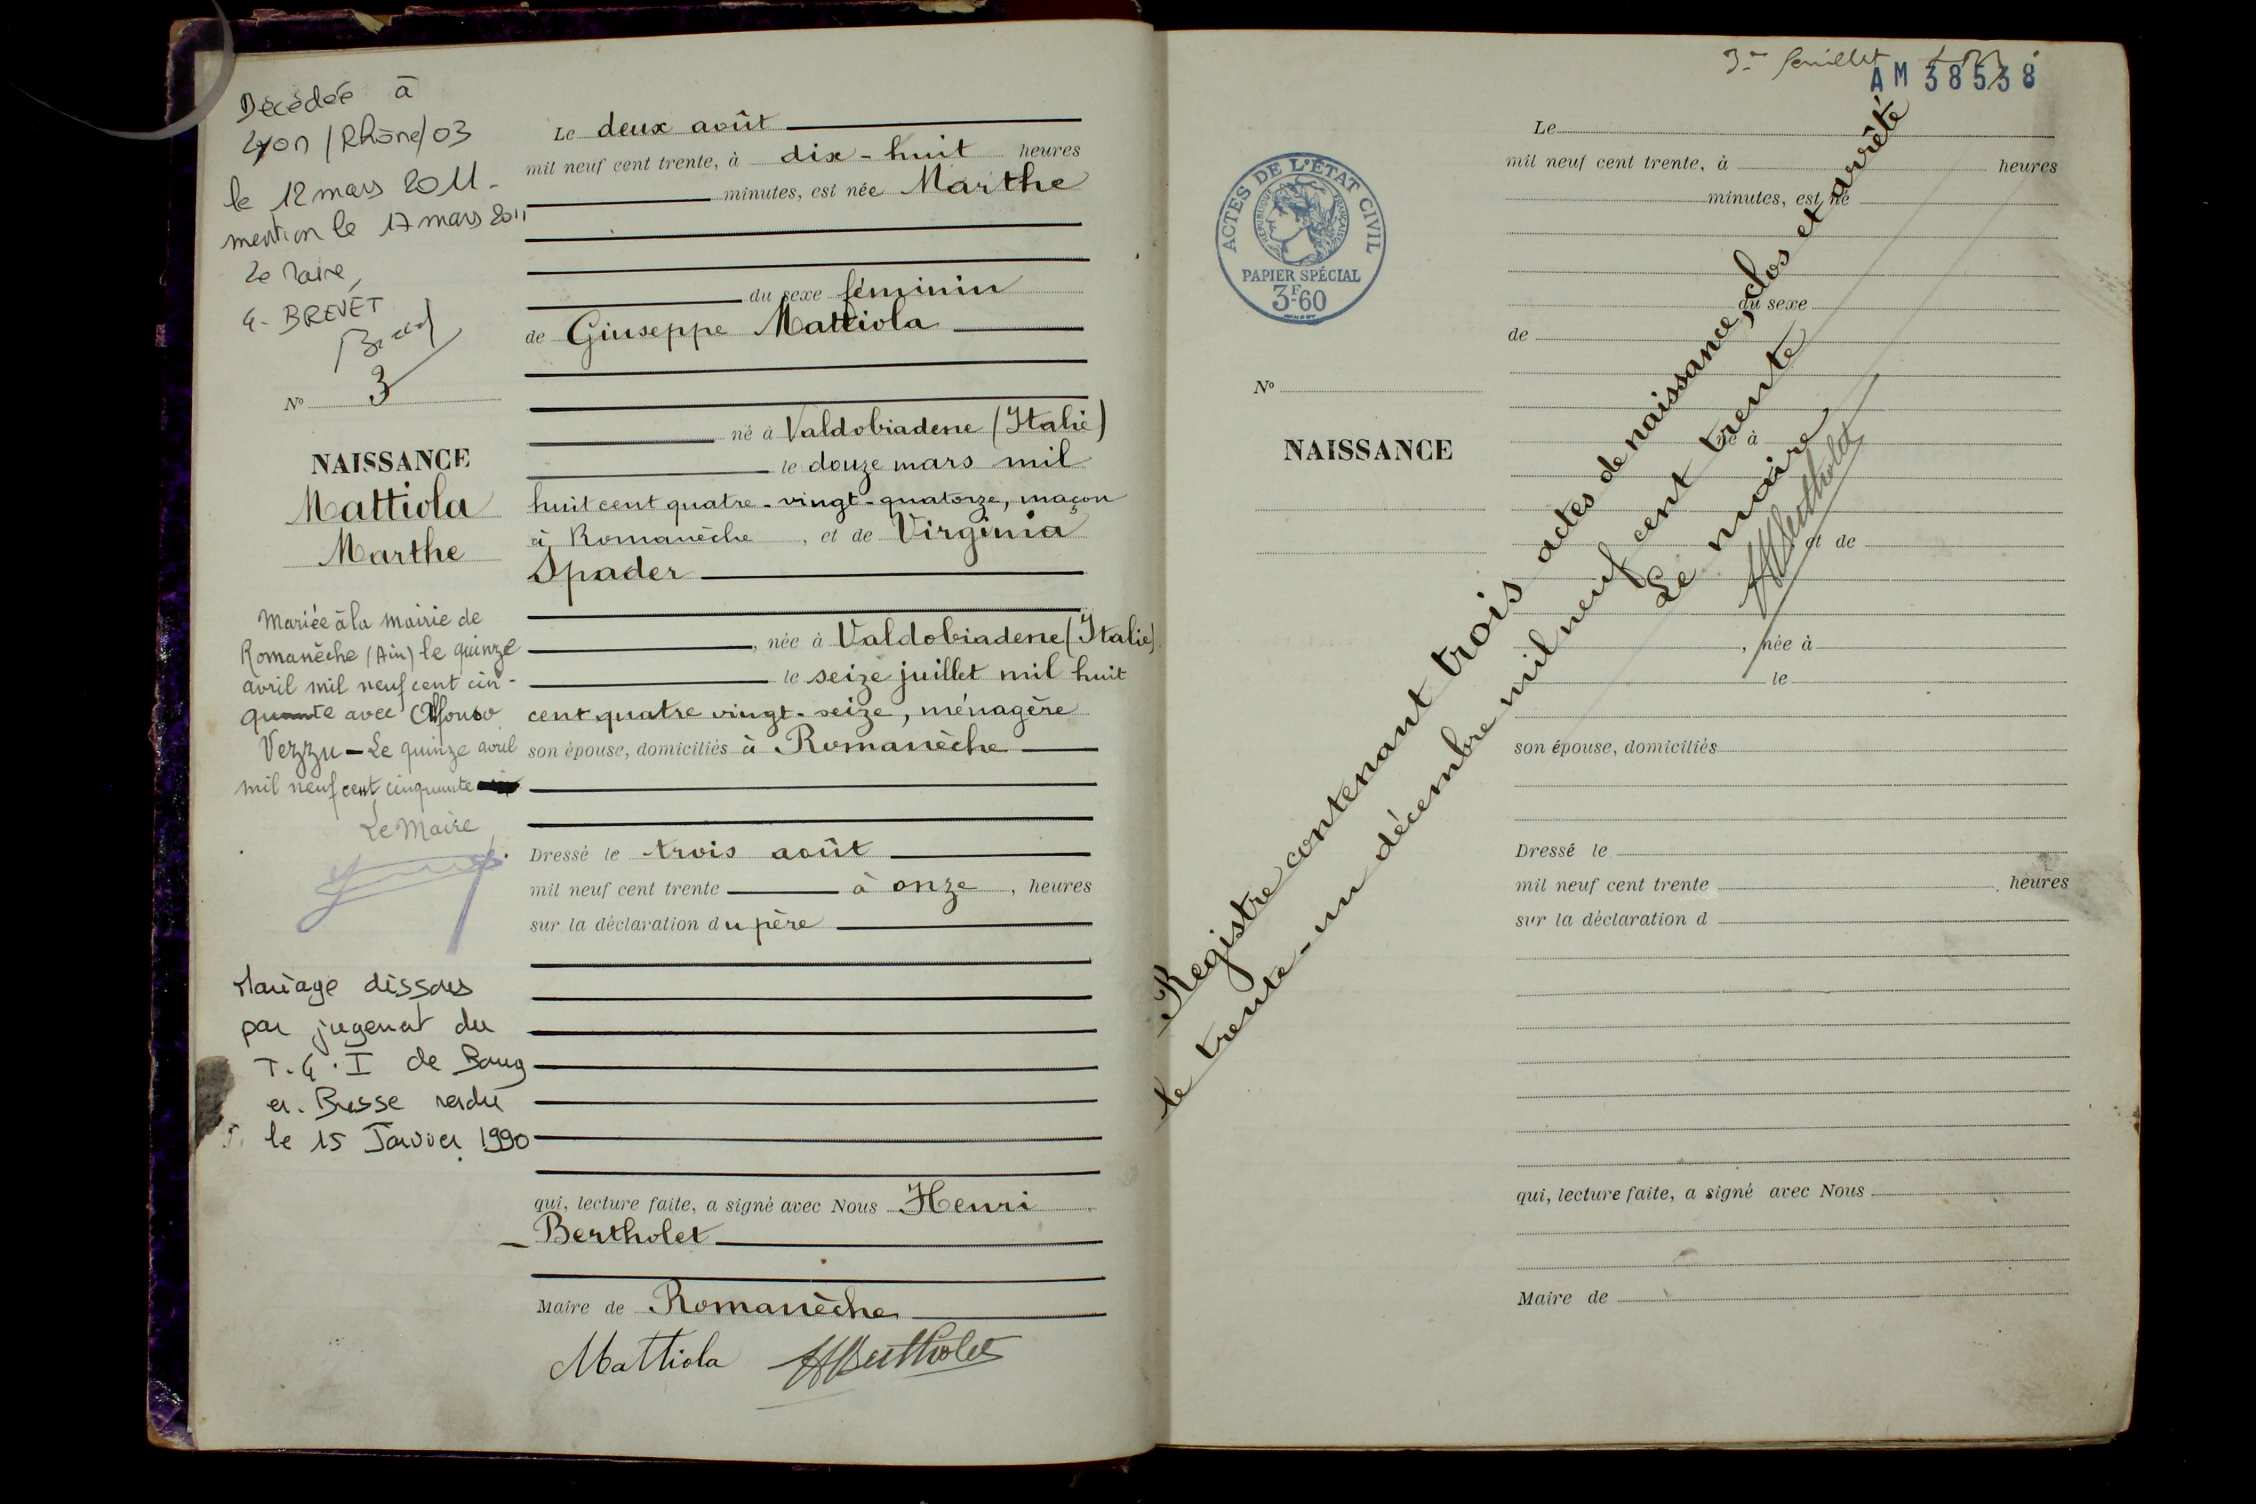 Décédée à
Lyon (Rhône) 03
le 12 mars 2011 -
mention le 17 mars 2011
Le Maire,
G. BREVET
N° 3
NAISSANCE
Mattiola
Marthe
Mariée à la mairie de
Romanèche (Ain) le quinze
avril mil neuf cent cin-
quante avec Alfonso
Vezzu - Le quinze avril
mil neuf cent cinquante
Le Maire,
Mariage dissous
par jugement du
T.G.I de Bourg
en. Bresse rendu
le 15 Janvier 1990
Le deux août
mil neuf cent trente, à dix-huit heures
minutes, est née Marthe
du sexe féminin
de Giuseppe Mattiola
né à Valdobiadene (Italie)
le douze mars mil
huit cent quatre-vingt-quatorze, maçon
à Romanèche, et de Virginia
Spader
, née à Valdobiadene (Italie)
le seize juillet mil huit
cent quatre vingt-seize, ménagère
son épouse, domiciliés à Romanèche
Dressé le trois août
mil neuf cent trente à onze, heures
sur la déclaration du père
qui, lecture faite, a signé avec Nous Henri
Bertholet
Maire de Romanèche
Mattiola HBertholet
3me feuillet
AM 38538
ACTES DE L'ÉTAT CIVIL
RÉPUBLIQUE FRANÇAISE
PAPIER SPÉCIAL
3F60
N°
NAISSANCE
Le
mil neuf cent trente, à heures
minutes, est né
du sexe
de
né à
le
et de
, née à
le
son épouse, domiciliés
Dressé le
mil neuf cent trente , heures
sur la déclaration d
qui, lecture faite, a signé avec Nous
Maire de
Registre contenant trois actes de naissance, clos et arrêté
le trente-un décembre mil neuf cent trente
Le maire
HBertholet